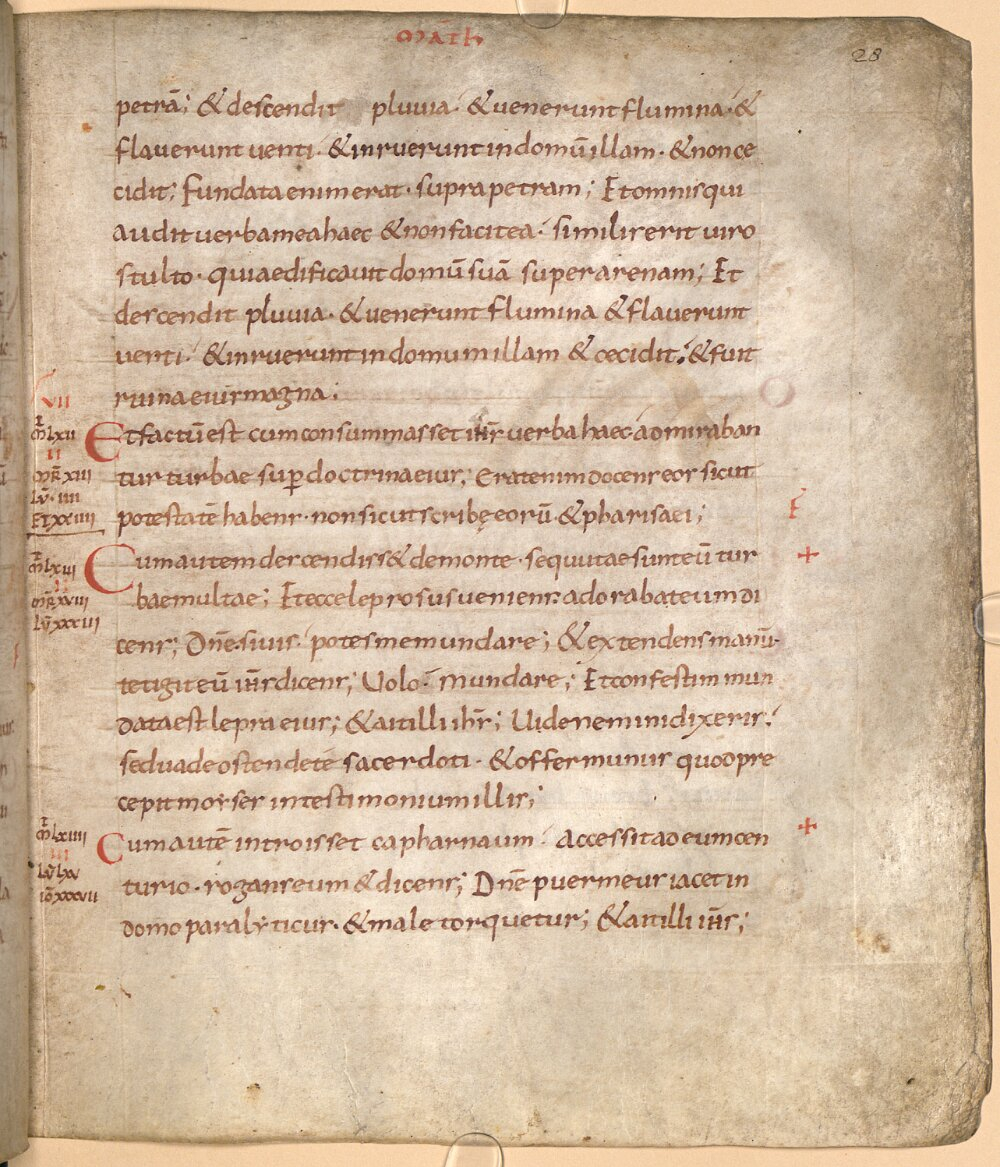 math
28
petrā; & descendit pluuia· & uenerunt flumina· &
flauerunt uenti· & inruerunt in domū illam· & non ce
cidit; Fundata enim erat· supra petram; Et omnis qui
audit uerba mea haec & non facit ea· similis erit uiro
stulto· qui aedificauit domū suā super arenam; Et
descendit pluuia· & uenerunt flumina & flauerunt
uenti· & inruerunt in domum illam & cecidit; & fuit
ruina eius magna·
VII
m̄ lxii
II
mr̄ xiii
lū· iiii
Et xxiiii
Et factū est cum consummasset ihs̄ uerba haec admiraban
tur turbae sup doctrina eius; Erat enim docens eos sicut
potestatē habens· non sicut scribę eorū & pharisaei;
m̄ lxiii
II
mr̄ xviii
lū xxxiii
Cum autem descendiss& de monte· sequutae sunt eū tur
bae multae; Et ecce leprosus ueniens adorabat eum di
cens; Dn̄e si uis· potes me mundare; & extendens manū·
tetigit eū ihs̄ dicens; Uolo· mundare; Et confestim mun
data est lepra eius; & ait illi ihs̄; Uide nemini dixeris·
sed uade ostende te sacerdoti· & offer munus quod pre
cepit moyses in testimonium illis;
m̄ lxiiii
III
lū lxv
iō xxxvii
Cum autē introisset capharnaum· Accessit ad eum cen
turio· rogans eum & dicens; Dn̄e puer meus iacet in
domo paralyticus· & male torquetur; & ait illi ihs̄;